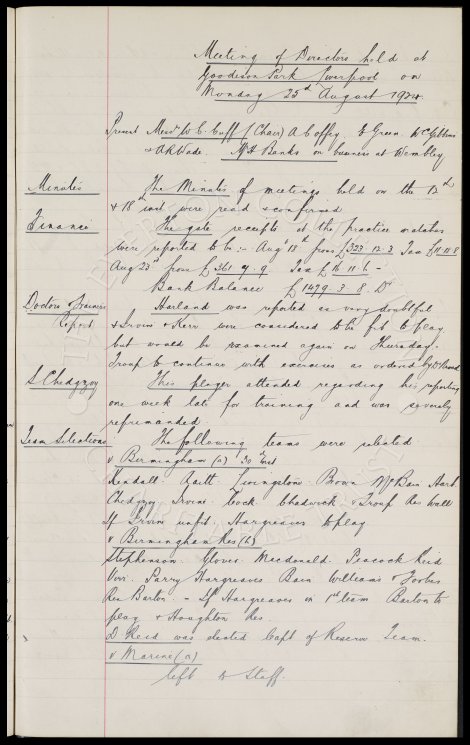 Meeting of Directors held at
Goodison Park Liverpool on
Monday 25th August 1924.
Present Messrs W. C. Cuff (Chair) A Coffey E Green W C Gibbins
& A R Wade. Mr Banks on business at Wembley
Minutes The Minutes of meetings held on the 12th
& 18th inst were read & confirmed
Finance The gate receipts at the practice matches
were reported to be:- Augt 18th from £323. 12. 3 Tax
Aug 23rd from £361. 7. 9. Tax £16 11. 6 -
Bank Balance £1479. 3. 8 Dr
Doctor & Trainers Harland was reported as very doubtful
Report & Irvine & Kerr were considered to be fit to play
but would be examined again on Thursday.
Troup to continue with exercises as ordered by
S Chedgzoy This player attended regarding his reporting
one week late for training and was severely
reprimanded
Team Selections The following teams were selected
v Birmingham (a) 30th inst
Kendall. Raitt. Livingstone. Brown McBain Hart
Chedgzoy Irvine. Cock Chadwick & Troup Res Wall
If Irvine unfit, Hargreaves to play
v Birmingham Res (h)
Stephenson. Glover. Macdonald. Peacock Reid
Virr. Parry Hargreaves Bain Williams & Forbes
Res Barton. - If Hargreaves in 1st team Barton to
play & Houghton Res.
D Reid was elected Capt of Reserve Team.
v Marine (a)
left to Staff.